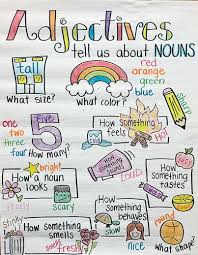 Adjectives
tell us about NOUNS
tall
What size?
what color?
red
orange
green
blue
sharp
one
two
three
four
5
How many?
cold
How something
feels
Hot
bright
How a noun
looks
scary
How something
sounds
loud
How something
tastes
sour
stinky
How something
smells
fresh
How something
behaves
nice
what shape?
round